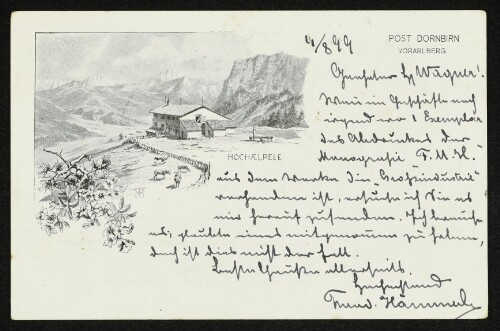 4/8 99
POST DORNBIRN
VORARLBERG
Geehrter Hr Wagner!
Wenn im Geschäfte noch
irgend wo 1 Exemplar
des Abdruckes der
Monografie F. M. H.
HOCHÆLPELE
aus dem Werke Die Großindustrie
vorhanden ist, ersuche ich Sie es
mir herauf zu senden. Ich brauche
es; glaubte eines mitgenommen zu haben,
doch ist dies nicht der Fall.
Beste Grüße allerseits.
Hochachtend
Hämmerle